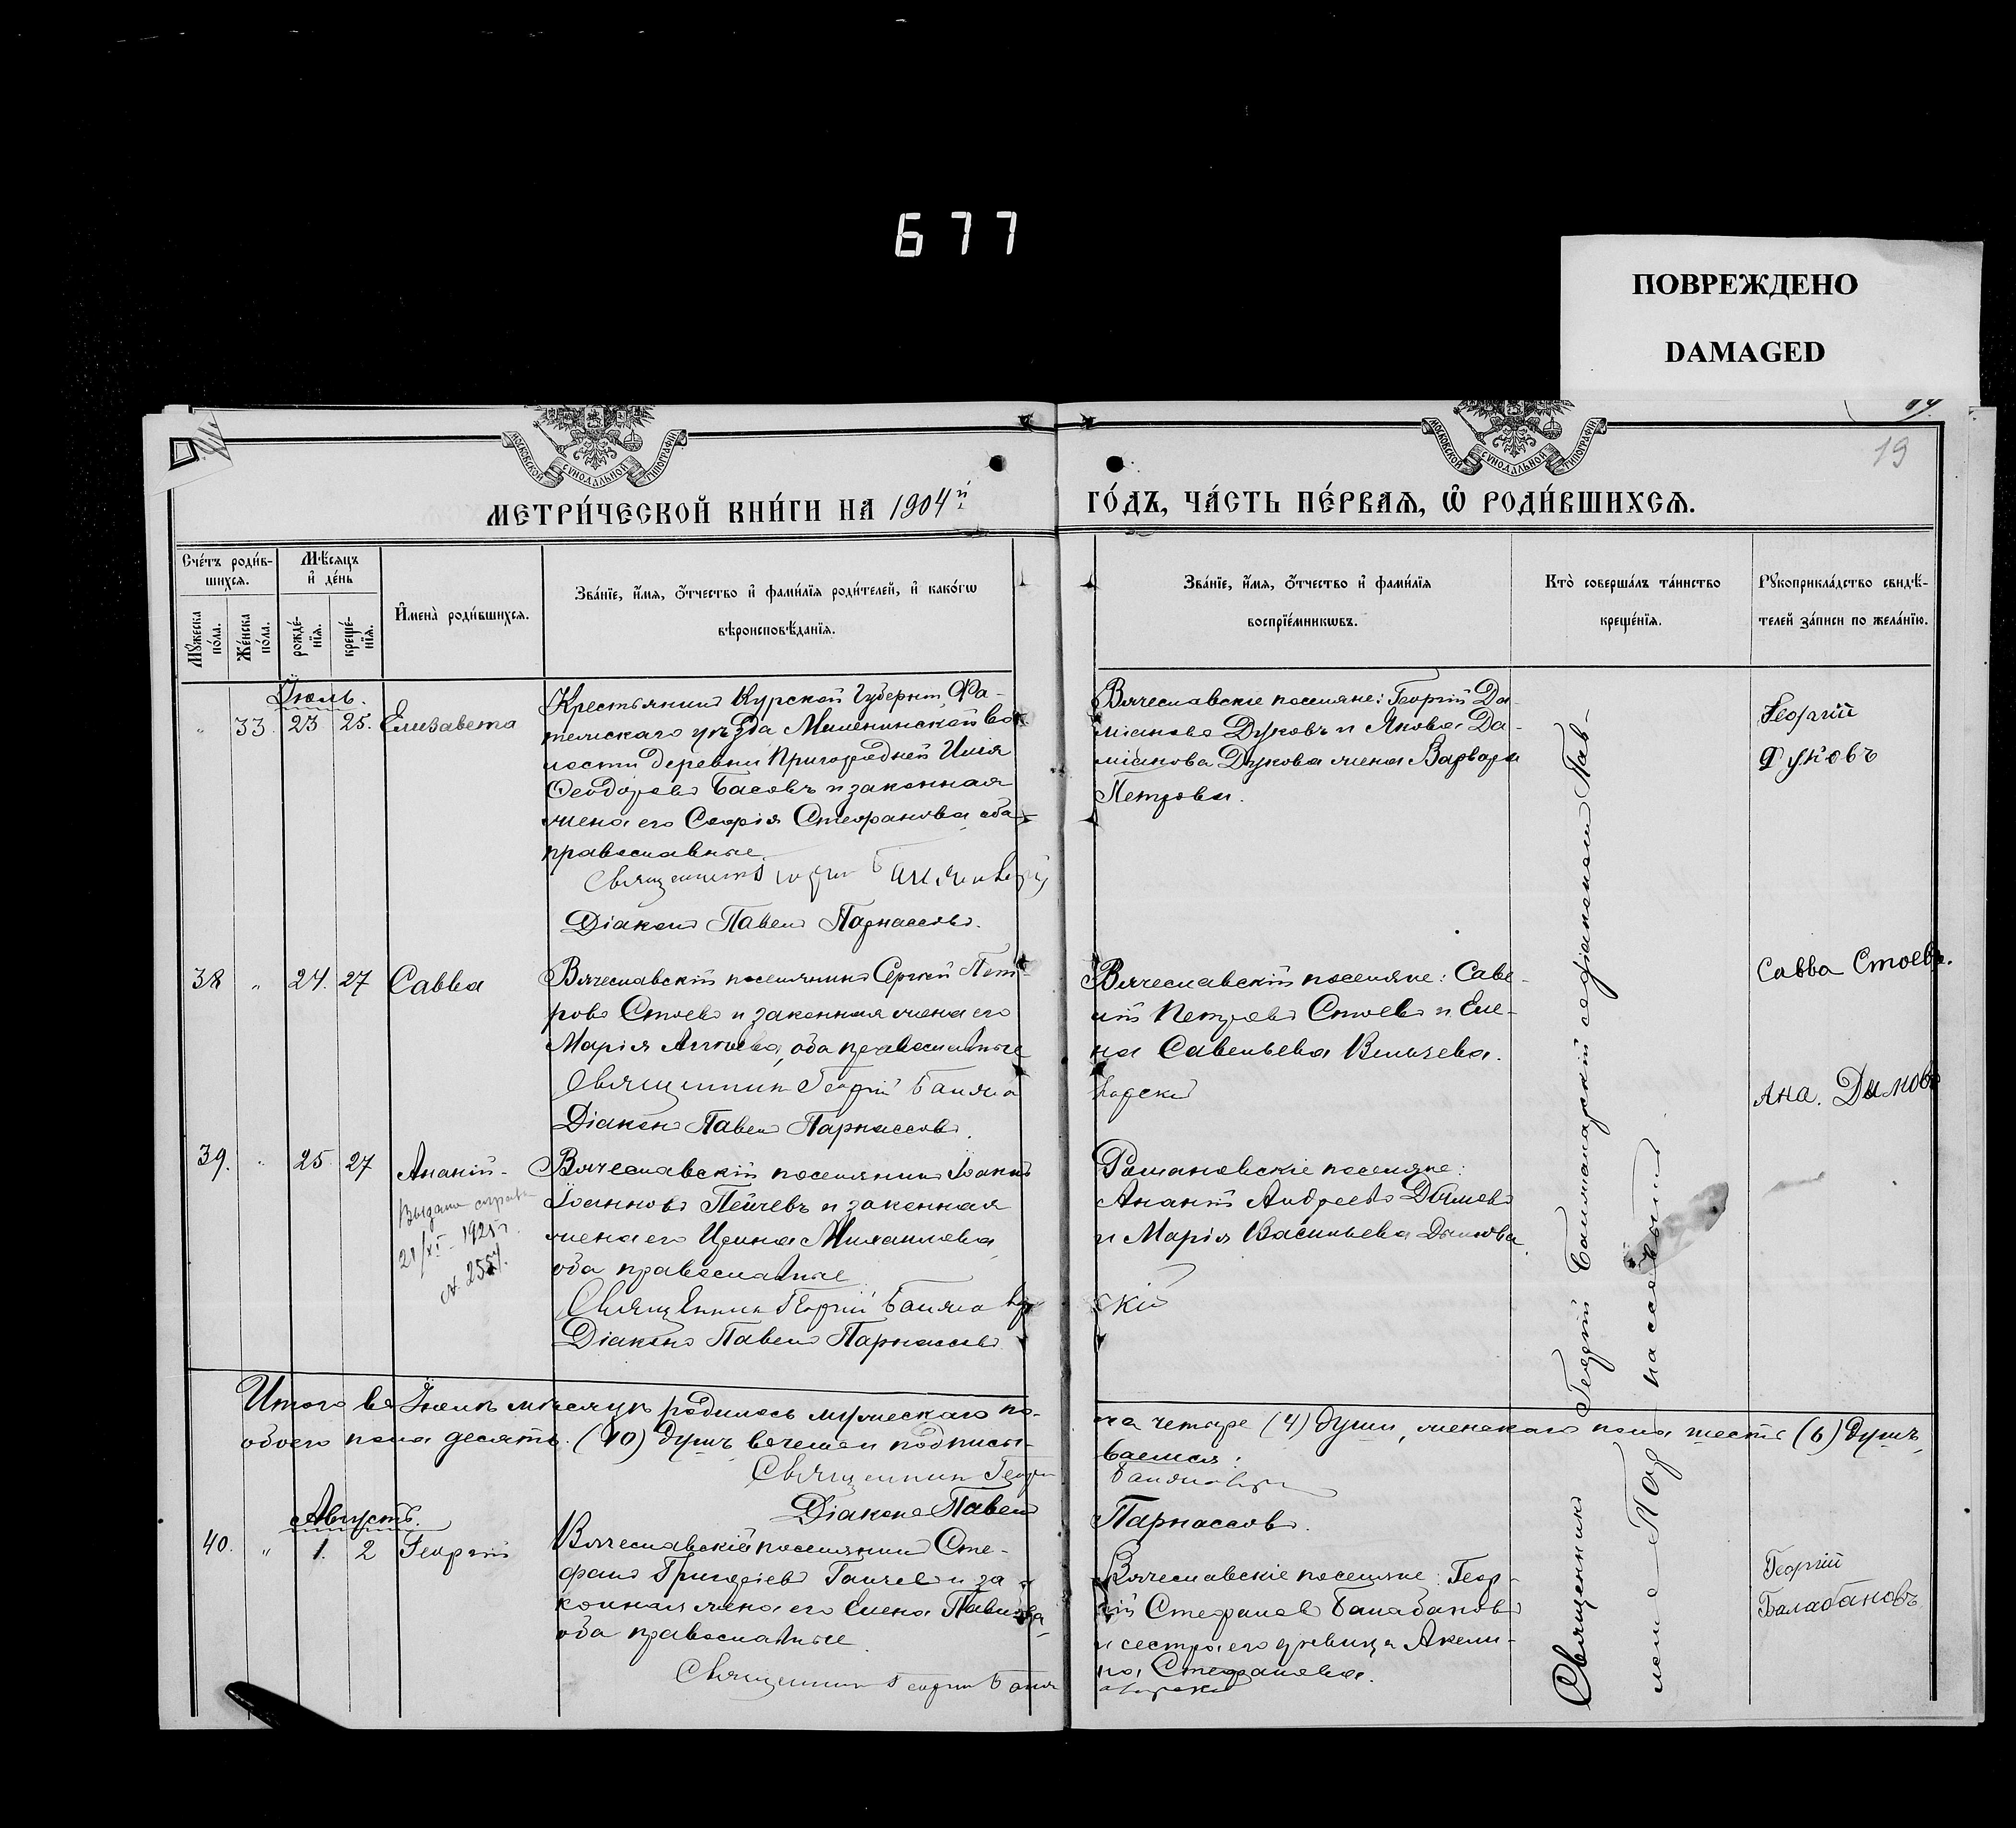 677
ПОВРЕЖДЕНО
DAMAGED
19
МОСКОВСКОЙ СѴНОДАЛЬНОЙ ТИПОГРАФІИ
МОСКОВСКОЙ СѴНОДАЛЬНОЙ ТИПОГРАФІИ
МЕТРИ́ЧЕСКОЙ КНИ́ГИ НА 1904й
ГО́ДЪ, ЧА́СТЬ ПЕ́РВАѦ, Ѽ РОДИ́ВШИХСѦ.
Сче́тъ роди́в-
шихсѧ.
Мꙋ́жеска по́ла.
Же́нска по́ла.
Мѣ́сяцъ
и҆ де́нь
рожде́-
нїѧ.
креще́-
нїѧ.
И҆мена̀ роди́вшихсѧ.
Зва́нїе, и҆́мѧ, ѻ҆́тчество и҆ фами́лїѧ роди́телей, и҆ како́гѡ
вѣроисповѣ́данїѧ.
Зва́нїе, и҆́мѧ, ѻ҆́тчество и҆ фами́лїѧ
воспрїе́мникѡвъ.
Кто̀ соверша́лъ та́инство
креще́нїѧ.
Рꙋкоприкла́дство свидѣ́-
телей за́писи по жела́нїю.
Іюль.
" 33. 23 25. Елизавета
Крестьянинъ Курской губерніи, Фа-
тежскаго уѣзда Миленинской во-
лости деревни Пригородней Илія
Ѳеодоровъ Басовъ и законная
жена его Софія Стефанова, оба
православные.
Священникъ
Діаконъ Павелъ Парнассовъ.
Вячеславскіе поселяне: Георгій Да-
міановъ Дуковъ и Якова Да-
міанова Дукова жена Варвара
Петрова.
Георгій
Дуковъ
38 " 24. 27 Савва
Вячеславскій поселянинъ Сергій Пет-
ровъ Стоевъ и законная жена его
Марія оба православные
Священникъ Георгій Балжа
Діаконъ Павелъ Парнассовъ.
Вячеславскій поселяне: Саве-
лій Петровъ Стоевъ и Еле-
на Савельева Вельчева.
ларскій
Савва Стоевъ.
39. " 25 27 Ананій
Выдана справка
21/XI - 1925 г.
Вячеславскій поселянинъ Іоаннъ
Іоанновъ Пейчевъ и законная
жена его Ирина Михаилова,
оба православные
Священникъ Георгій Балжа
Діаконъ Павелъ Парнассовъ
Романовскіе поселяне:
Ананій Андреевъ Дымовъ
и Марія Васильева Дымова
скій
Ана. Дымовъ
Итого въ Іюлѣ мѣсяцѣ родилось мужескаго по-
ла четыре (4) души, женскаго пола шесть (6) душъ,
обоего пола десять (10) душъ, въ чемъ и подписы-
ваемся:
Священникъ Георгій
Діаконъ Павелъ
Парнассовъ.
Августъ.
40. " 1. 2 Георгій
Вячеславскій поселянинъ Сте-
фанъ Григоріевъ Ганчевъ и за-
конная жена его Елена Павлова,
оба православные.
Священникъ Георгій
Вячеславскіе поселяне: Геор-
гій Стефановъ Балабановъ
и сестра его дѣвица Акели-
на Стефанова.
Георгій
Балабановъ
Священникъ Георгій съ діакономъ Пав-
ломъ Пар нассовымъ